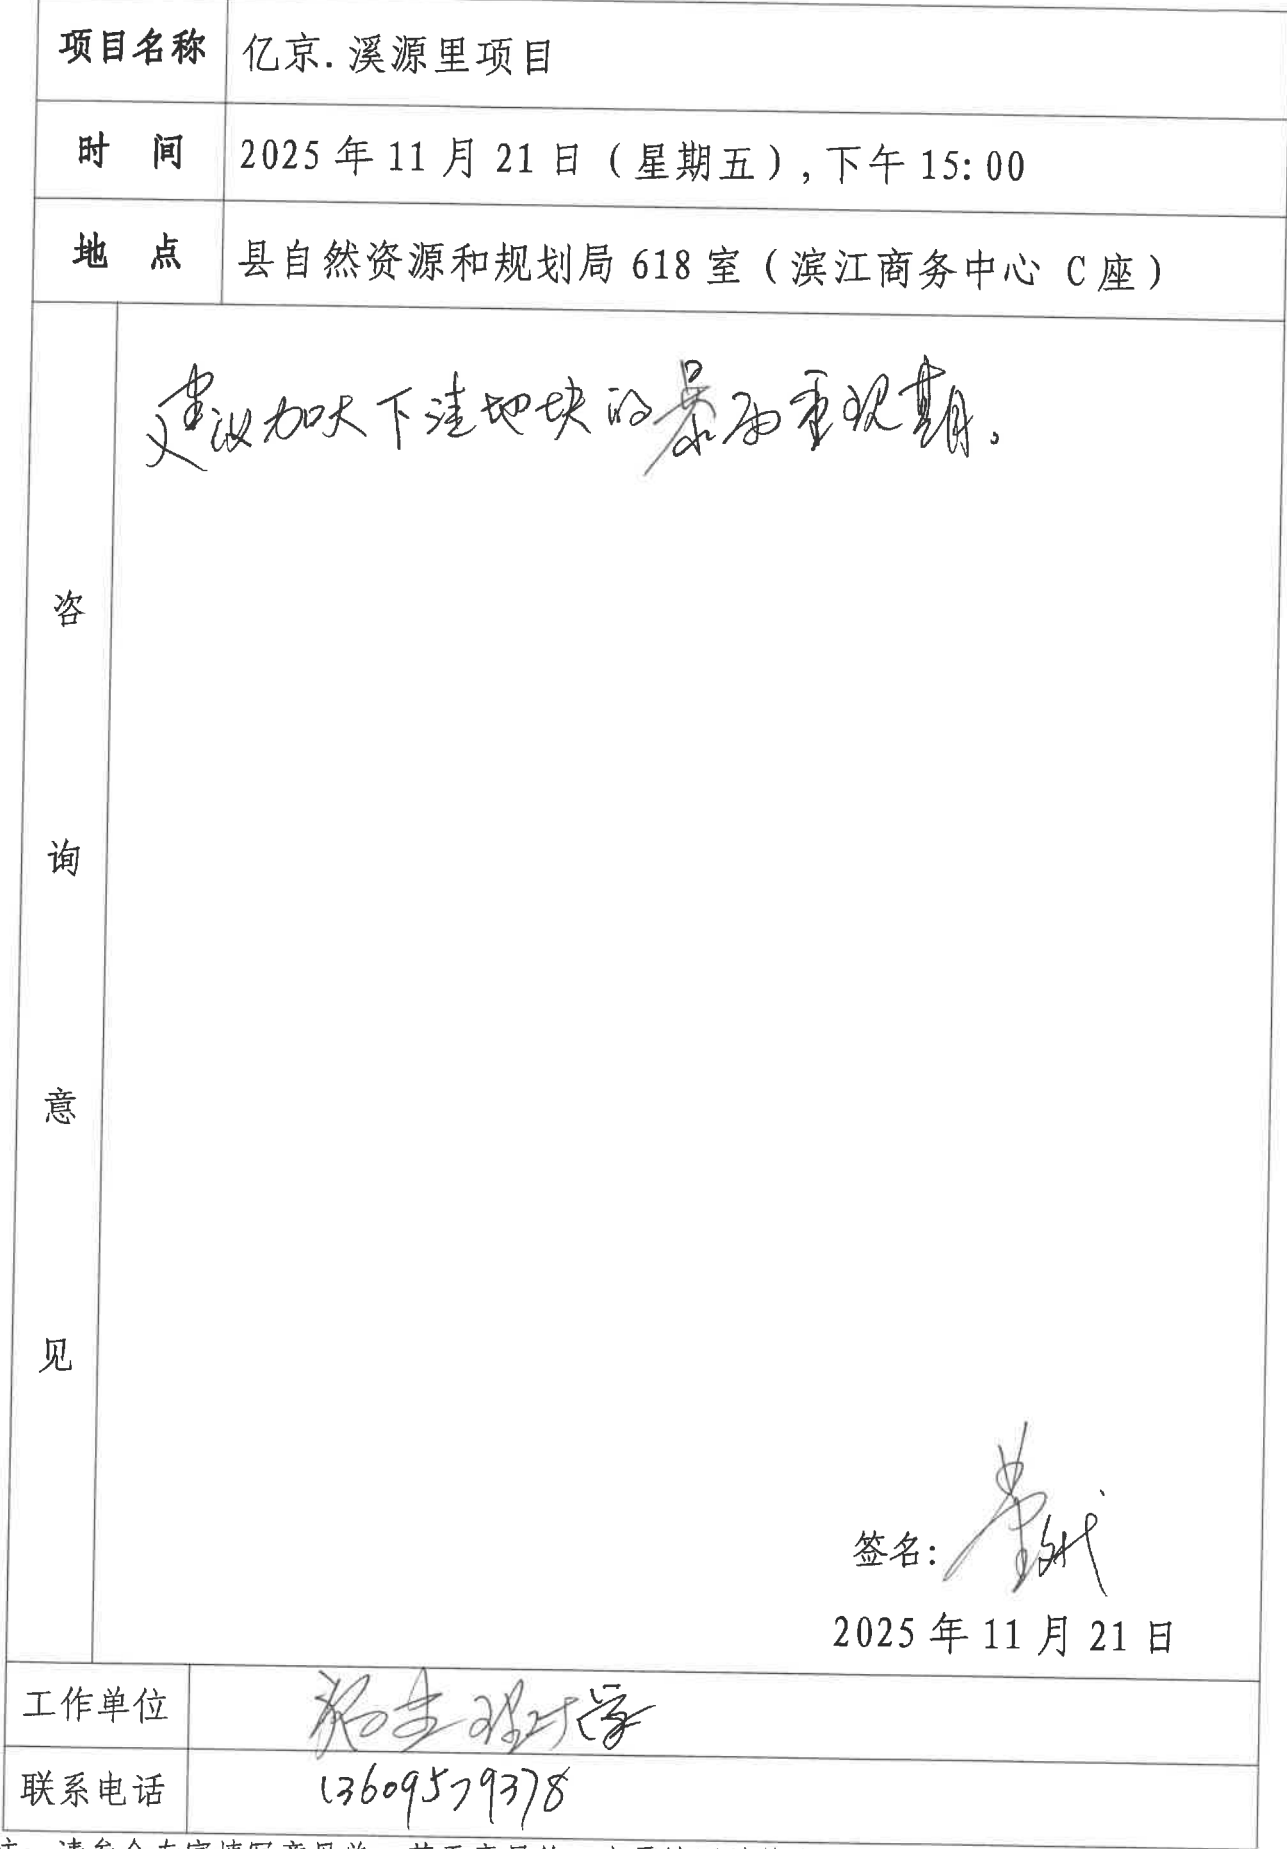 项目名称 亿京.溪源里项目
时 间 2025年11月21日（星期五）,下午15:00
地 点 县自然资源和规划局618室（滨江商务中心 C座）
建议加大下洼地块的暴雨重现期。
咨
询
意
见
签名:
2025年11月21日
工作单位 福建理工大学
联系电话 13609579378